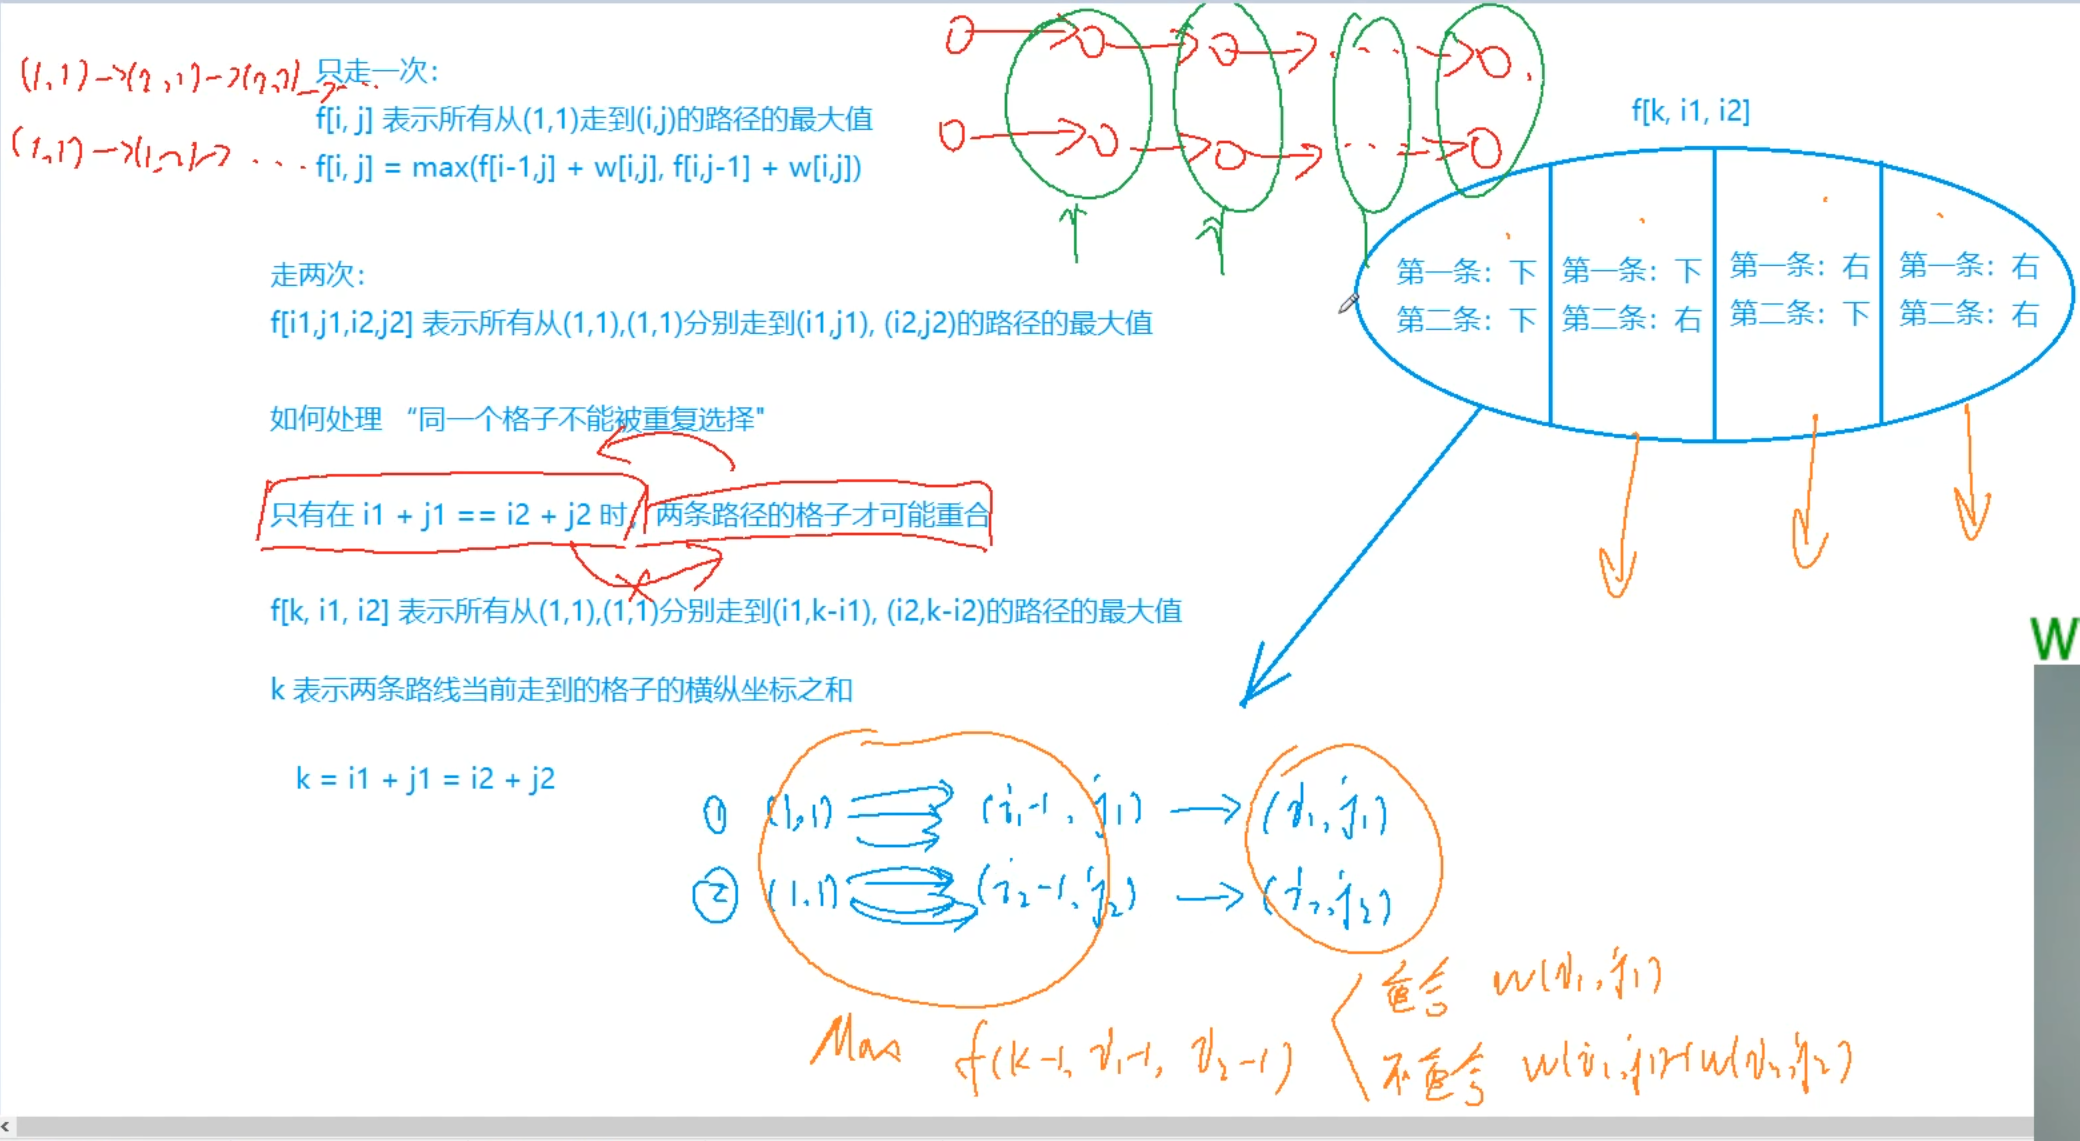 (1,1)->(2,1)->(2,2)->...
只走一次：
f[i, j] 表示所有从(1,1)走到(i,j)的路径的最大值
(1,1)->(1,2)->...
f[i, j] = max(f[i-1,j] + w[i,j], f[i,j-1] + w[i,j])
走两次：
f[i1,j1,i2,j2] 表示所有从(1,1),(1,1)分别走到(i1,j1), (i2,j2)的路径的最大值
如何处理 “同一个格子不能被重复选择"
只有在 i1 + j1 == i2 + j2 时，两条路径的格子才可能重合
f[k, i1, i2] 表示所有从(1,1),(1,1)分别走到(i1,k-i1), (i2,k-i2)的路径的最大值
k 表示两条路线当前走到的格子的横纵坐标之和
k = i1 + j1 = i2 + j2
f[k, i1, i2]
第一条：下 第一条：下 第一条：右 第一条：右
第二条：下 第二条：右 第二条：下 第二条：右
① (1,1) (i1-1, j1) → (i1, j1)
② (1,1) (i2-1, j2) → (i2, j2)
重合 w(i1, j1)
Max f(k-1, i1-1, i2-1)
不重合 w(i1,j1)+w(i2,j2)
W